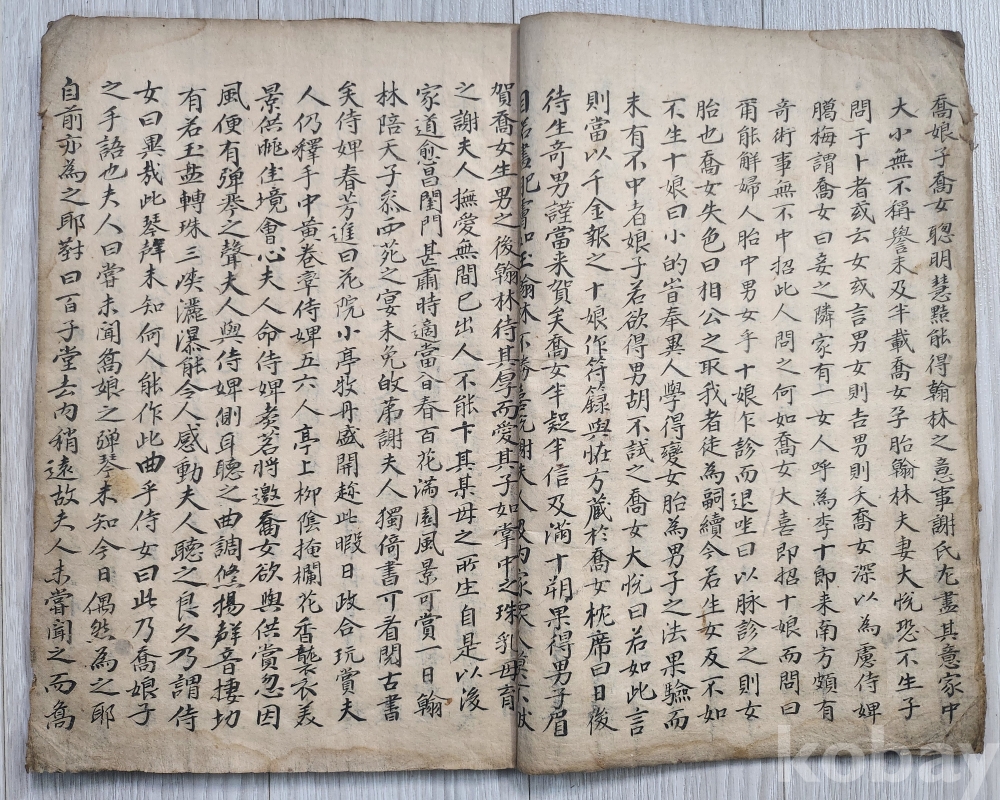 喬娘子喬女聰明慧黠能得翰林之意事謝氏尤盡其意家中
大小無不稱譽未及半載喬女孕胎翰林夫妻大悅恐不生子
問于卜者或云女或言男女則吉男則夭喬女深以為慮侍婢
臘梅謂喬女曰妾之隣家有一女人呼為李十郎来南方頗有
奇術事無不中招此人問之何如喬女大喜即招十娘而問曰
甭能解婦人胎中男女乎十娘乍診而退坐曰以脉診之則女
胎也喬女失色曰相公之取我者徒為嗣續今若生女反不如
不生十娘曰小的曾奉異人學得變女胎為男子之法果驗而
末有不中者娘子若欲得男胡不試之喬女大悅曰若如此言
則當以千金報之十娘作符籙與怪方蔵於喬女枕席曰日後
待生奇男謹當来賀矣喬女半疑半信及滿十朔果得男子眉
賀喬女生男之後翰林待其厚而愛其子如掌中之珠乳母育
之謝夫人撫愛無間己出人不能卞其某母之所生自是以後
家道愈昌閨門甚肅時適當暮春百花滿園風景可賞一日翰
林陪天子忝西苑之宴未免故第謝夫人獨倚書丌看閱古書
矣侍婢春芳進曰花院小亭牧丹盛開趂此暇日政合玩賞夫
人仍釋手中黄卷率侍婢五六人亭上柳陰掩欄花香襲衣美
景供眺佳境會心夫人命侍婢煮茗將邀喬女欲與供賞忽因
風便有弹琴之聲夫人與侍婢側耳聽之曲調悠揚群音悽切
有若玉盤轉珠三峽灑瀑能令人感動夫人聽之良久乃謂侍
女曰異哉此琴聲未知何人能作此曲乎侍女曰此乃喬娘子
之手語也夫人曰嘗未聞喬娘之弹琴未知今日偶然為之耶
自前亦為之耶對曰百子堂去内稍遠故夫人未嘗聞之而喬
kobay